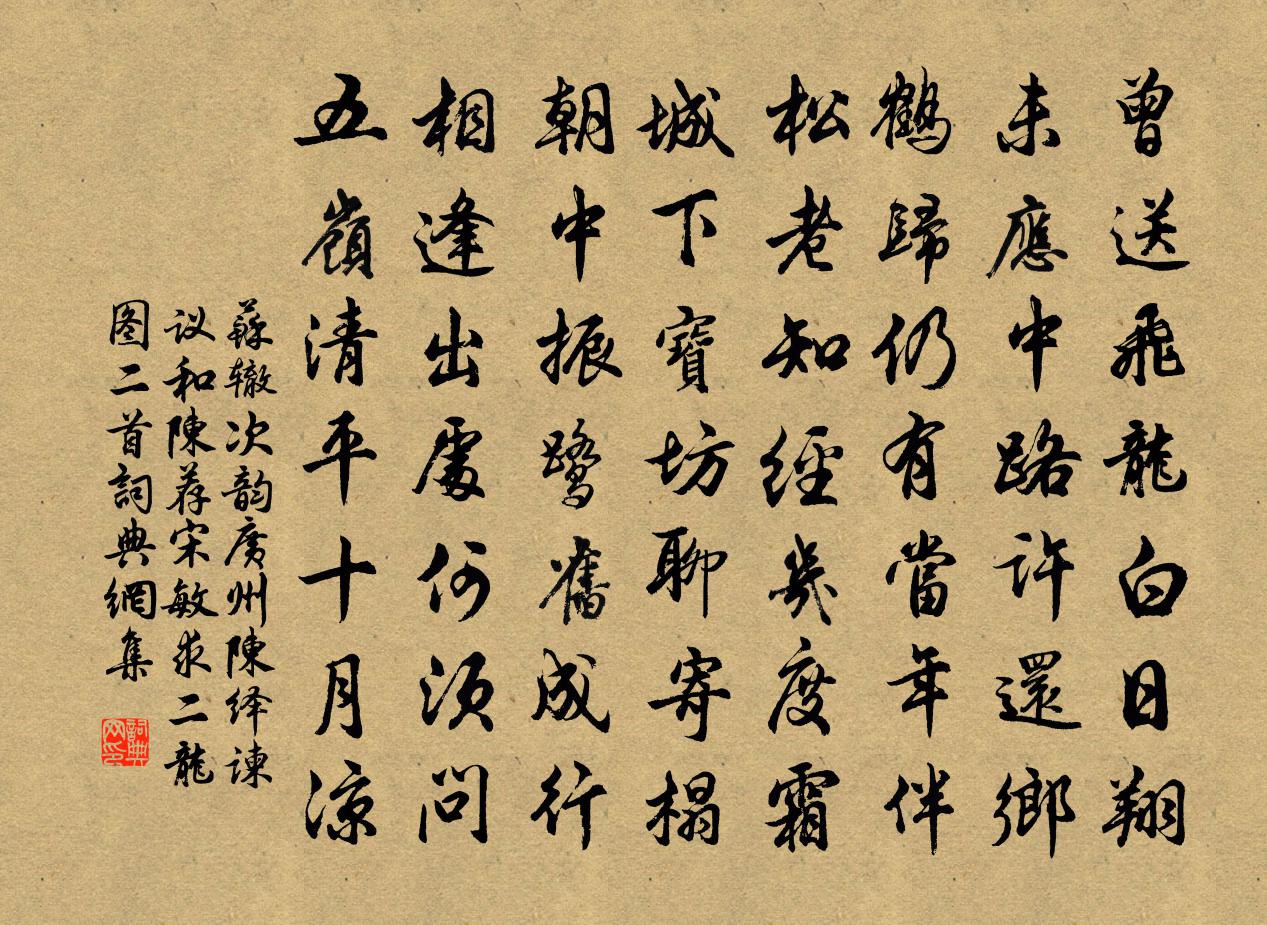 曾送飛龍白日翔
未應中路許還鄉
鶴歸仍有當年伴
松老知經幾度霜
城下寶坊聊寄榻
朝中振鷺舊成行
相逢出處何須問
五嶺清平十月涼
蘇辙次韵廣州陳绎谏
议和陳荐宋敏求二龍
图二首詞典網集
詞典
网印